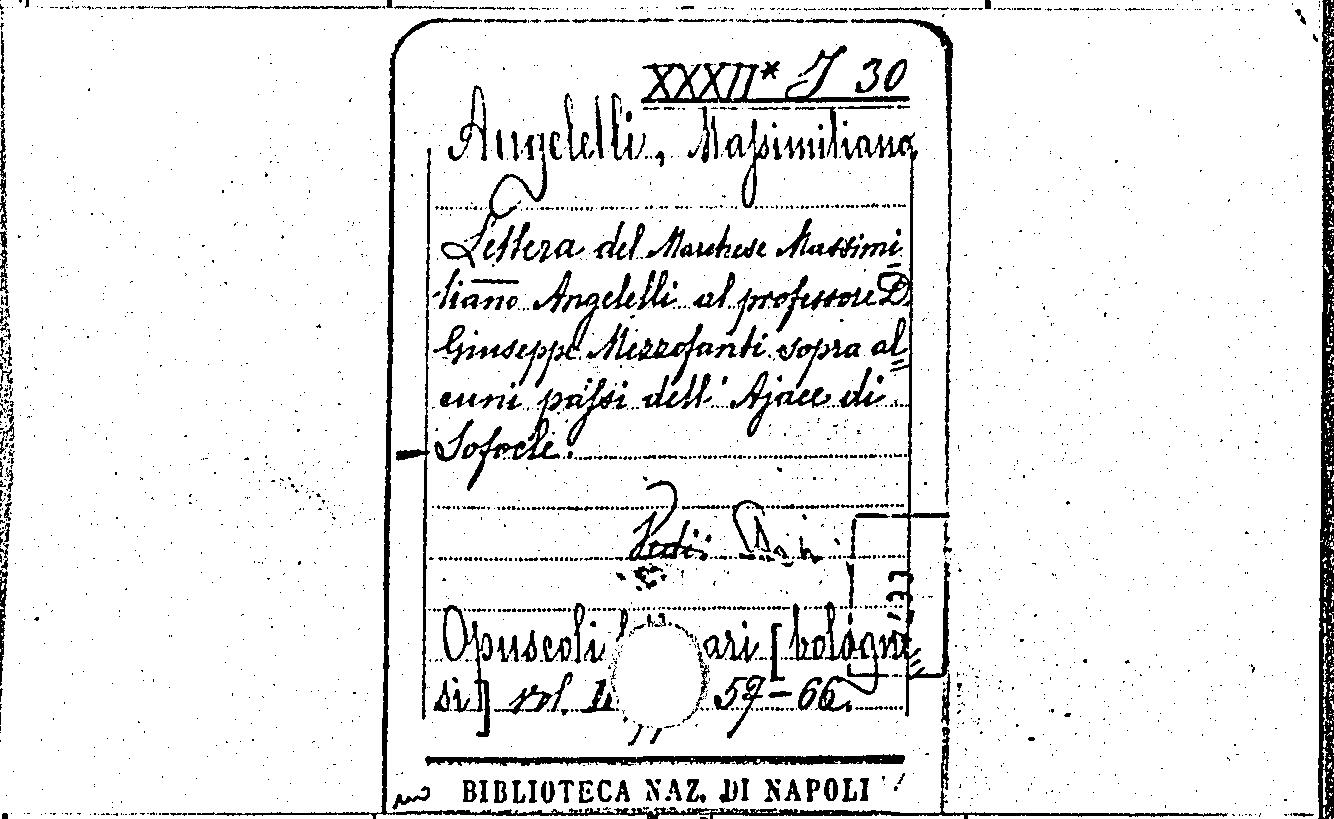 XXXII* J 30
Angelelli, Massimiliano
Lettera del Marchese Massimi
liano Angelelli al professore D.
Giuseppe Mezzofanti sopra al=
cuni passi dell' Ajace di
Sofocle.
Vedi:
Opuscoli [bologne=
si] vol. 59-66.
BIBLIOTECA NAZ. DI NAPOLI